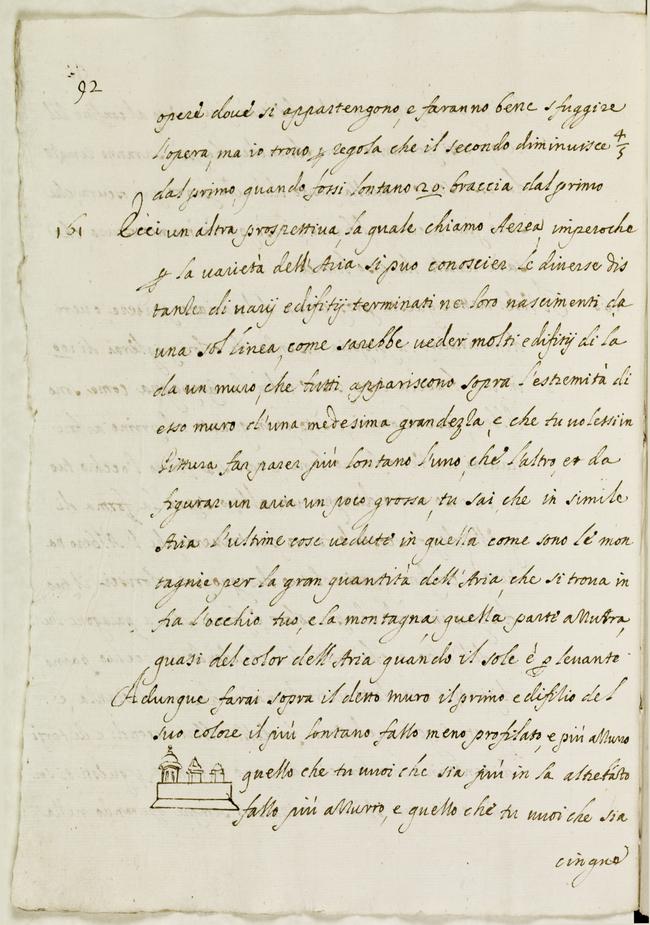 92
opere doue si appartengono, e faranno bene sfuggire
l'opera, ma io trouo p regola che il secondo diminuisce 4/5
dal primo, quando fossi lontano 20 braccia dal primo
161 Ecci un altra prospettiua, la quale chiamo Aerea, imperoche
p la varietà dell'Aria si puo conoscier le diverse dis
tanze di varij edifitij terminati ne loro nascimenti da
una sol linea, come sarebbe ueder molti edifitij di la
da un muro, che tutti appariscono sopra l'estremità di
esso muro d'una medesima grandezza, e che tu uolessi in
Pittura far parer più lontano l'uno, che l'altro, et da
figurar un aria un poco grossa, tu sai, che in simile
Aria l'ultime cose uedute in quella come sono le mon
tagnie per la gran quantità dell'Aria, che si troua in
fra l'occhio tuo, e la montagna, quella parte azzurra,
quasi del color dell'Aria quando il sole è p leuante
Adunque farai sopra il detto muro il primo edifitio del
suo colore il più lontano fallo meno profilato, e più azzurro
quello che tu uuoi che sia più in la altretãto
fallo più azzurro, e quello che tu uuoi che sia
cinque